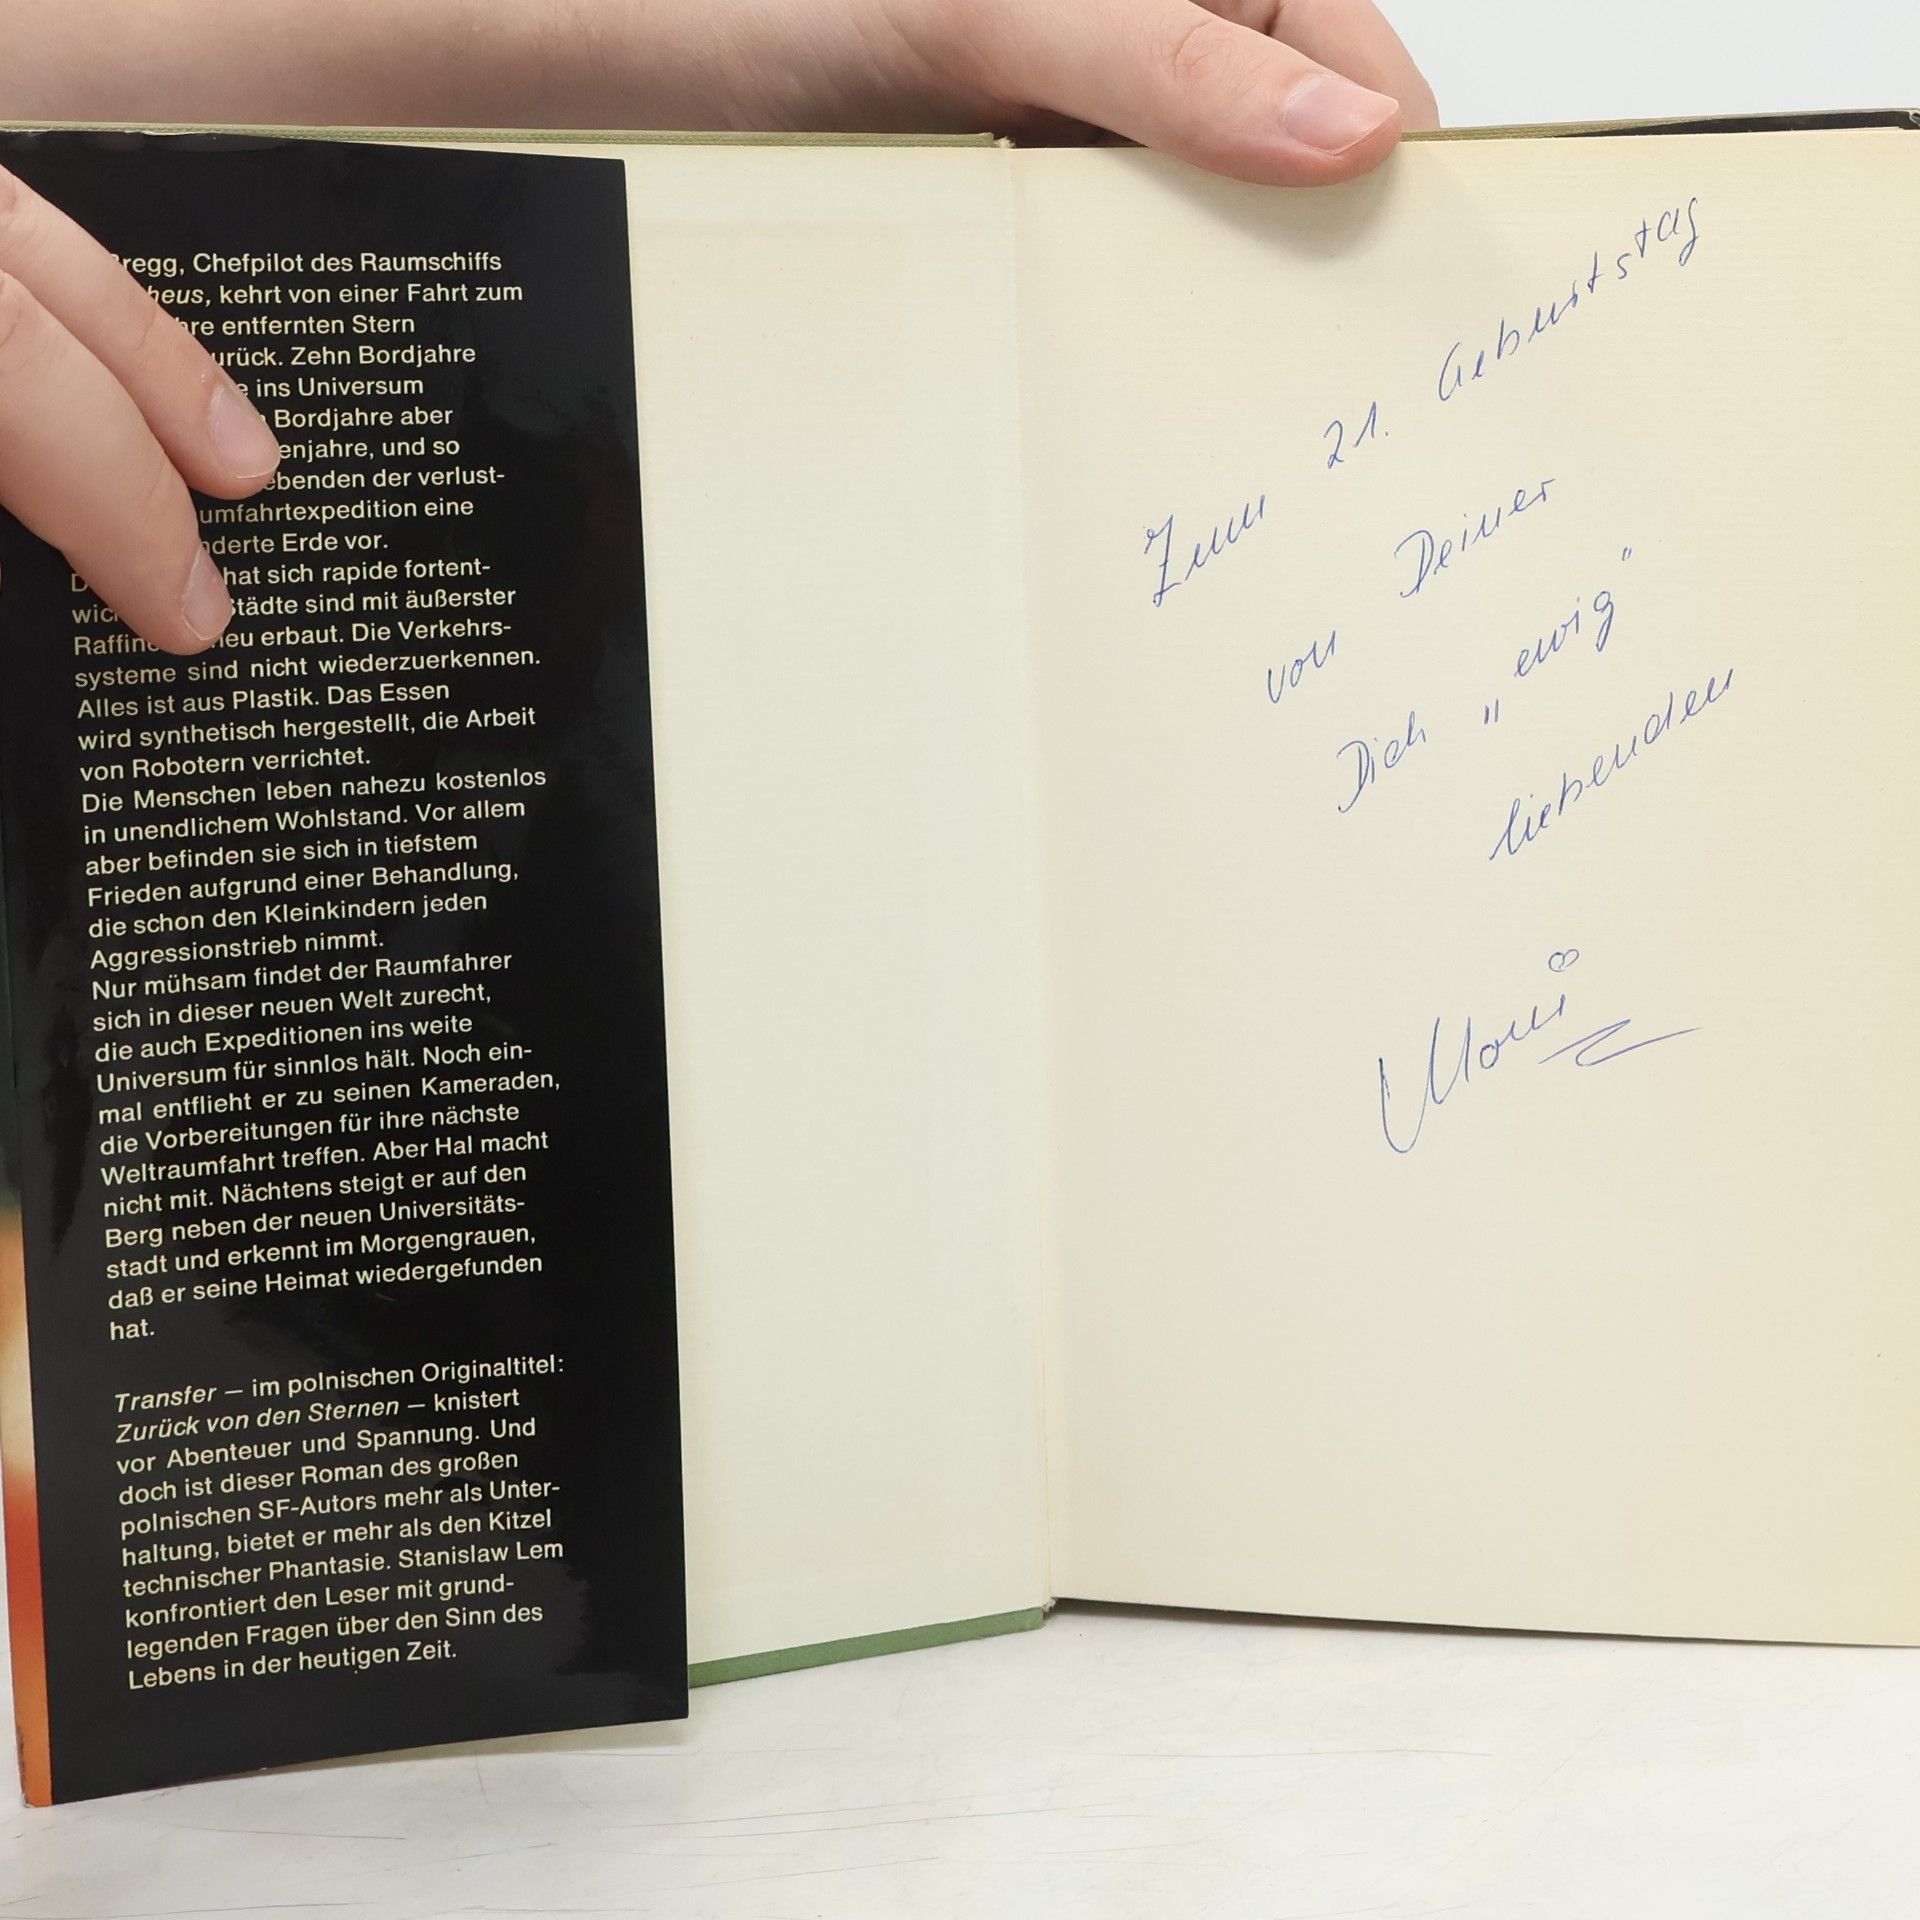 regg, Chefpilot des Raumschiffs
heus, kehrt von einer Fahrt zum
hre entfernten Stern
urück. Zehn Bordjahre
e ins Universum
Bordjahre aber
enjahre, und so
ebenden der verlust-
umfahrtexpedition eine
nderte Erde vor.
hat sich rapide fortent-
wic Städte sind mit äußerster
Raffin neu erbaut. Die Verkehrs-
systeme sind nicht wiederzuerkennen.
Alles ist aus Plastik. Das Essen
wird synthetisch hergestellt, die Arbeit
von Robotern verrichtet.
Die Menschen leben nahezu kostenlos
in unendlichem Wohlstand. Vor allem
aber befinden sie sich in tiefstem
Frieden aufgrund einer Behandlung,
die schon den Kleinkindern jeden
Aggressionstrieb nimmt.
Nur mühsam findet der Raumfahrer
sich in dieser neuen Welt zurecht,
die auch Expeditionen ins weite
Universum für sinnlos hält. Noch ein-
mal entflieht er zu seinen Kameraden,
die Vorbereitungen für ihre nächste
Weltraumfahrt treffen. Aber Hal macht
nicht mit. Nächtens steigt er auf den
Berg neben der neuen Universitäts-
stadt und erkennt im Morgengrauen,
daß er seine Heimat wiedergefunden
hat.
Transfer — im polnischen Originaltitel:
Zurück von den Sternen — knistert
vor Abenteuer und Spannung. Und
doch ist dieser Roman des großen
polnischen SF-Autors mehr als Unter-
haltung, bietet er mehr als den Kitzel
technischer Phantasie. Stanislaw Lem
konfrontiert den Leser mit grund-
legenden Fragen über den Sinn des
Lebens in der heutigen Zeit.
Zum 21. Geburtstag
von Deiner
Dich "ewig"
liebenden
Moni